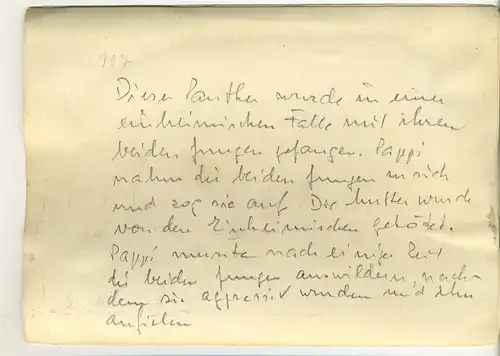 107
Dieser Panther wurde in einer
einheimischen Falle mit ihren
beiden Jungen gefangen. Pappi
nahm die beiden Jungen an sich
und zog sie auf. Die Mutter wurde
von den Einheimischen getötet.
Pappi musste nach einiger Zeit
die beiden Jungen auswildern, nach-
dem sie aggressiv wurden und ihn
anfielen